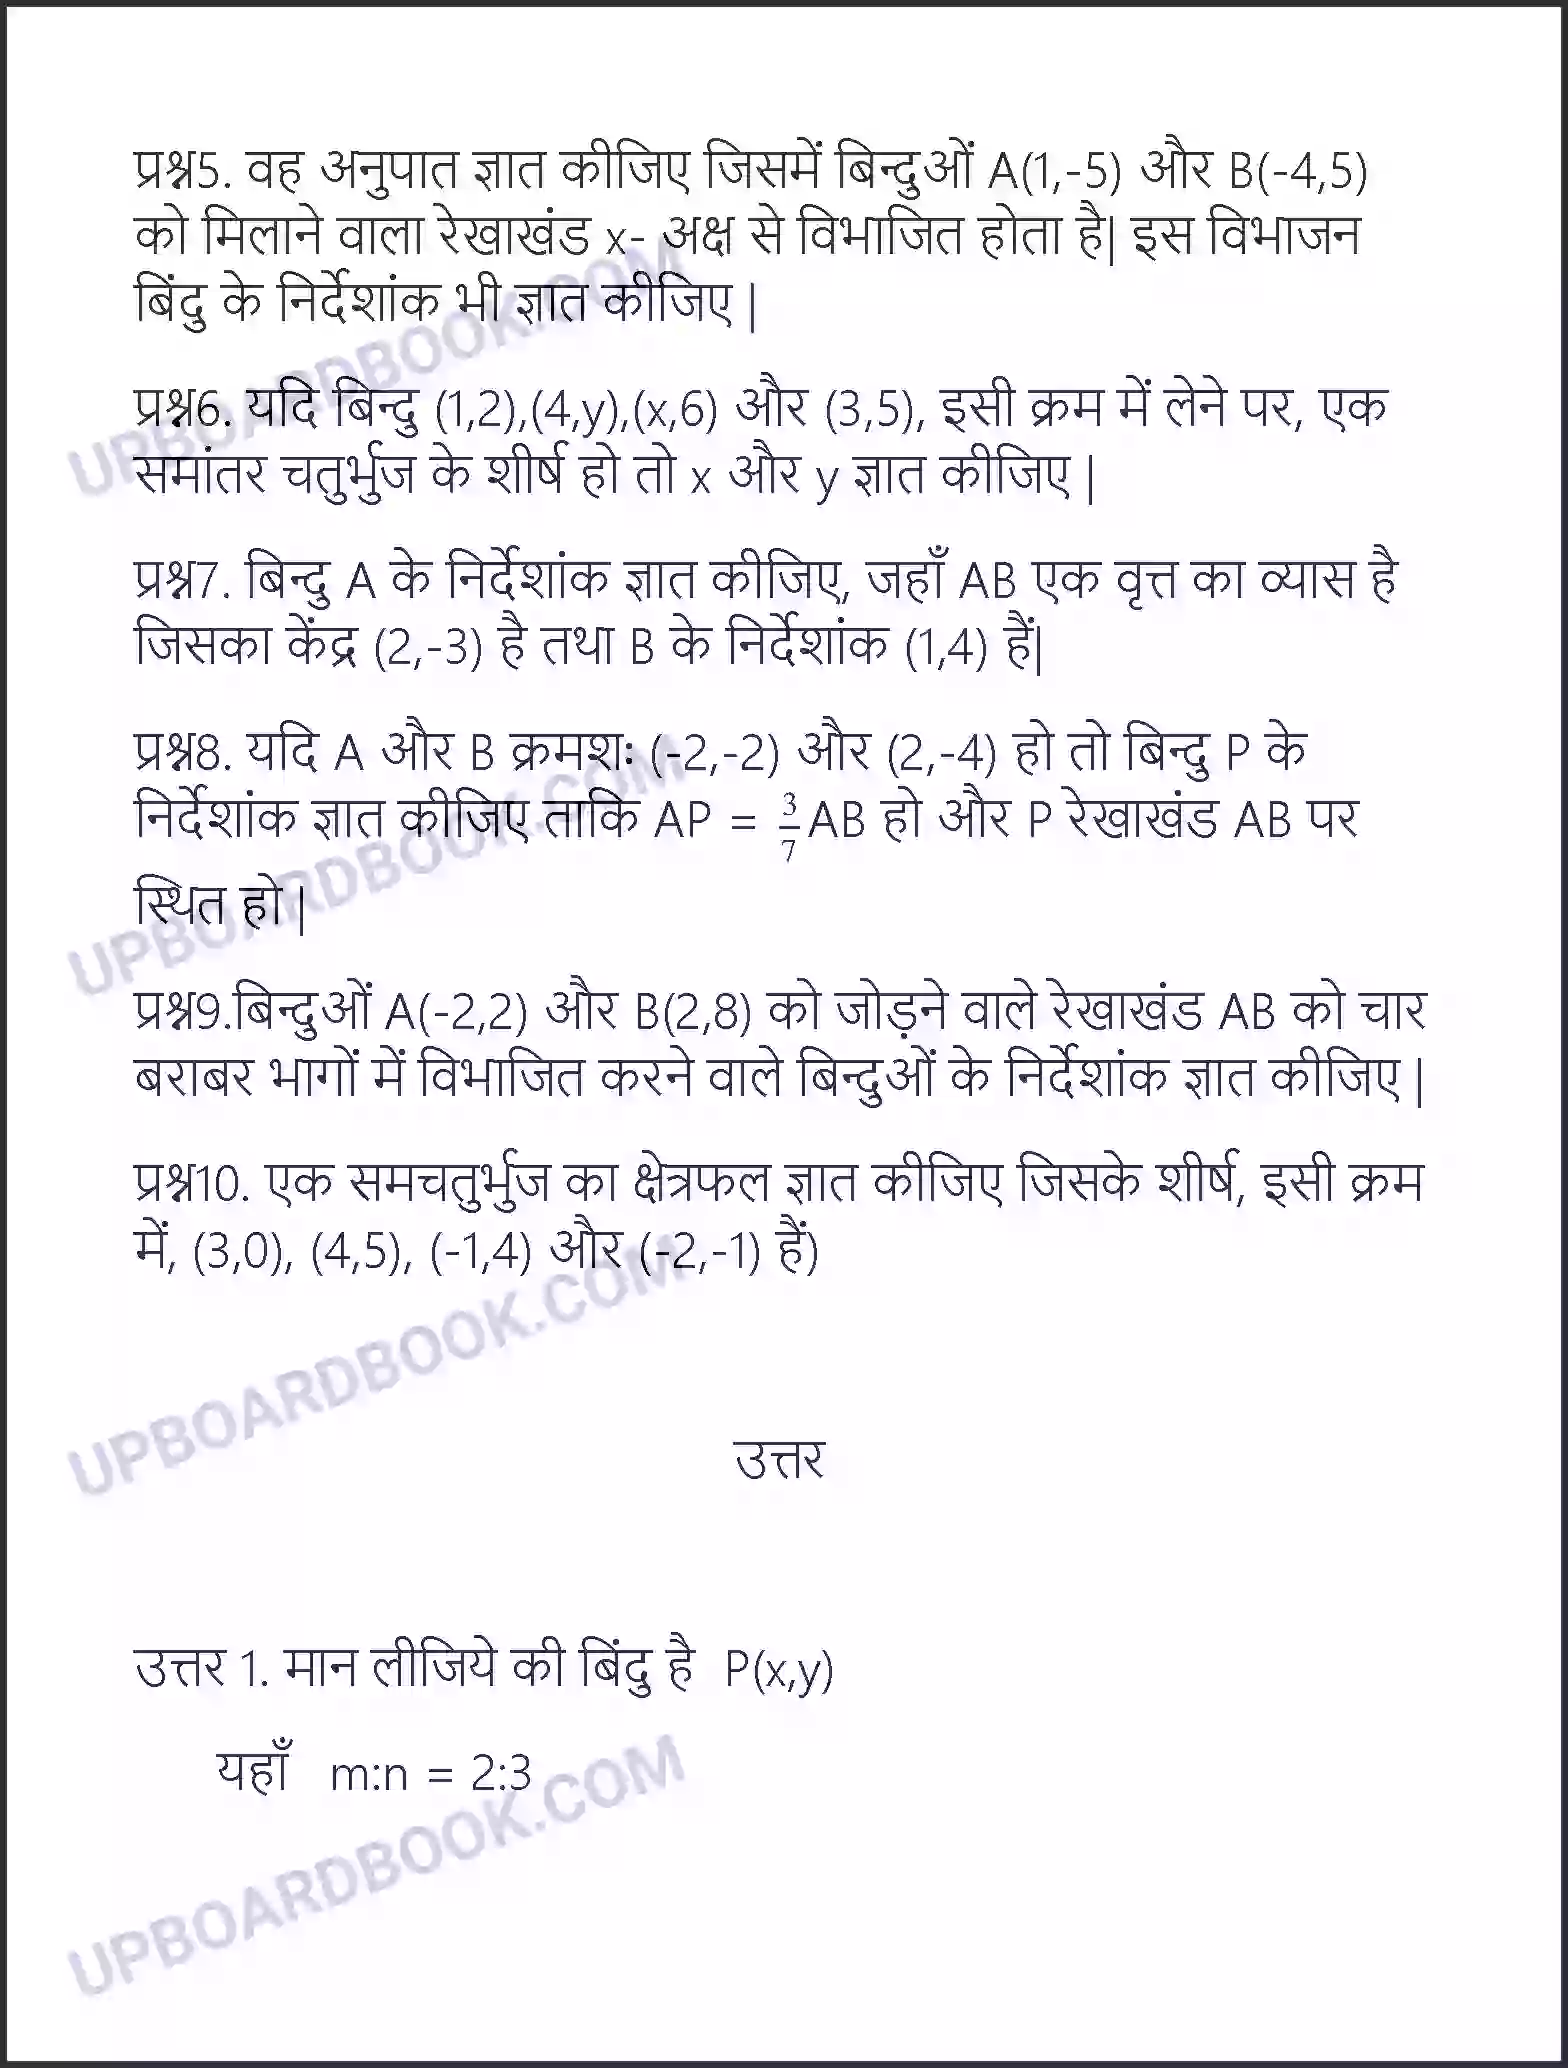 प्रश्न5. वह अनुपात ज्ञात कीजिए जिसमें बिन्दुओं A(1,-5) और B(-4,5)
को मिलाने वाला रेखाखंड x- अक्ष से विभाजित होता है| इस विभाजन
बिंदु के निर्देशांक भी ज्ञात कीजिए |
प्रश्न6. यदि बिन्दु (1,2),(4,y),(x,6) और (3,5), इसी क्रम में लेने पर, एक
समांतर चतुर्भुज के शीर्ष हो तो x और y ज्ञात कीजिए |
प्रश्न7. बिन्दु A के निर्देशांक ज्ञात कीजिए, जहाँ AB एक वृत्त का व्यास है
जिसका केंद्र (2,-3) है तथा B के निर्देशांक (1,4) हैं|
प्रश्न8. यदि A और B क्रमशः (-2,-2) और (2,-4) हो तो बिन्दु P के
निर्देशांक ज्ञात कीजिए ताकि AP = 3/7 AB हो और P रेखाखंड AB पर
स्थित हो |
प्रश्न9.बिन्दुओं A(-2,2) और B(2,8) को जोड़ने वाले रेखाखंड AB को चार
बराबर भागों में विभाजित करने वाले बिन्दुओं के निर्देशांक ज्ञात कीजिए |
प्रश्न10. एक समचतुर्भुज का क्षेत्रफल ज्ञात कीजिए जिसके शीर्ष, इसी क्रम
में, (3,0), (4,5), (-1,4) और (-2,-1) हैं)
उत्तर
उत्तर 1. मान लीजिये की बिंदु है P(x,y)
यहाँ m:n = 2:3
UPBOARDBOOK.COM
UPBOARDBOOK.COM
UPBOARDBOOK.COM
UPBOARDBOOK.COM